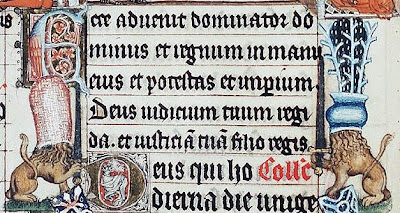 Ecce advenit dominator do
minus et regnum in manu
eius et potestas et imperium.
Deus iudicium tuum regi
da. et iusticiã tuã filio regis
Deus qui ho Collc̃
dierna die unige